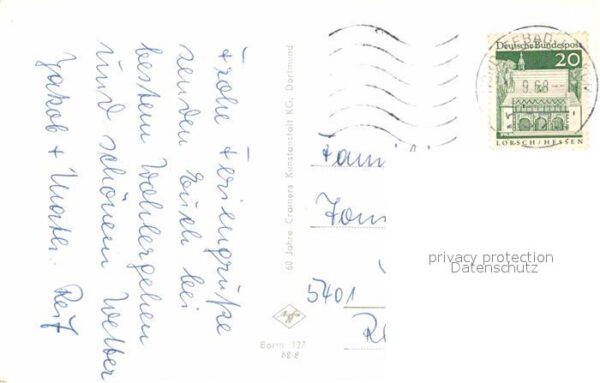 Frohe Feriengrüße
senden Euch bei
bestem Wohlergehen
und schönem Wetter
Jakob +
60 Jahre Cramers Kunstanstalt KG, Dortmund
Borm 127
68 8
Deutsche Bundespost
20
LORSCH/HESSEN
9.68
5401
privacy protection
Datenschutz